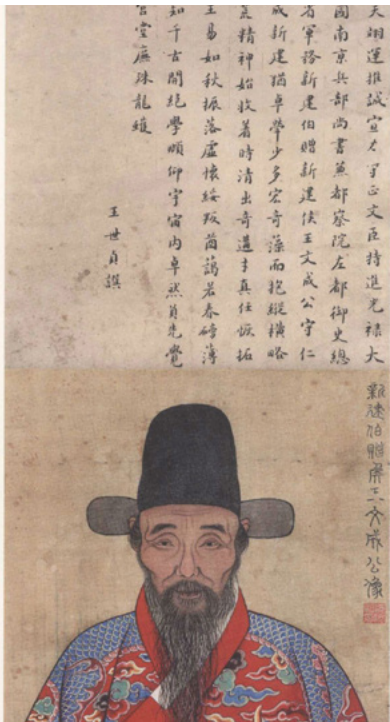 天翊運推誠宣力守正文臣特進光祿大
國南京兵部尚書兼都察院左都御史總
省軍務新建伯贈新建侯王文成公守仁
成新建猶卓犖少多宏奇藻而抱縱橫略
精神始收着時清出奇遘才真任恢拓
王易如秋振落虛懷綏叛酋藹若春磚薄
知千古開絕學頫仰宇宙內卓然負先覺
宮堂廡珠龍
王世貞撰
新建伯贈侯王文成公像